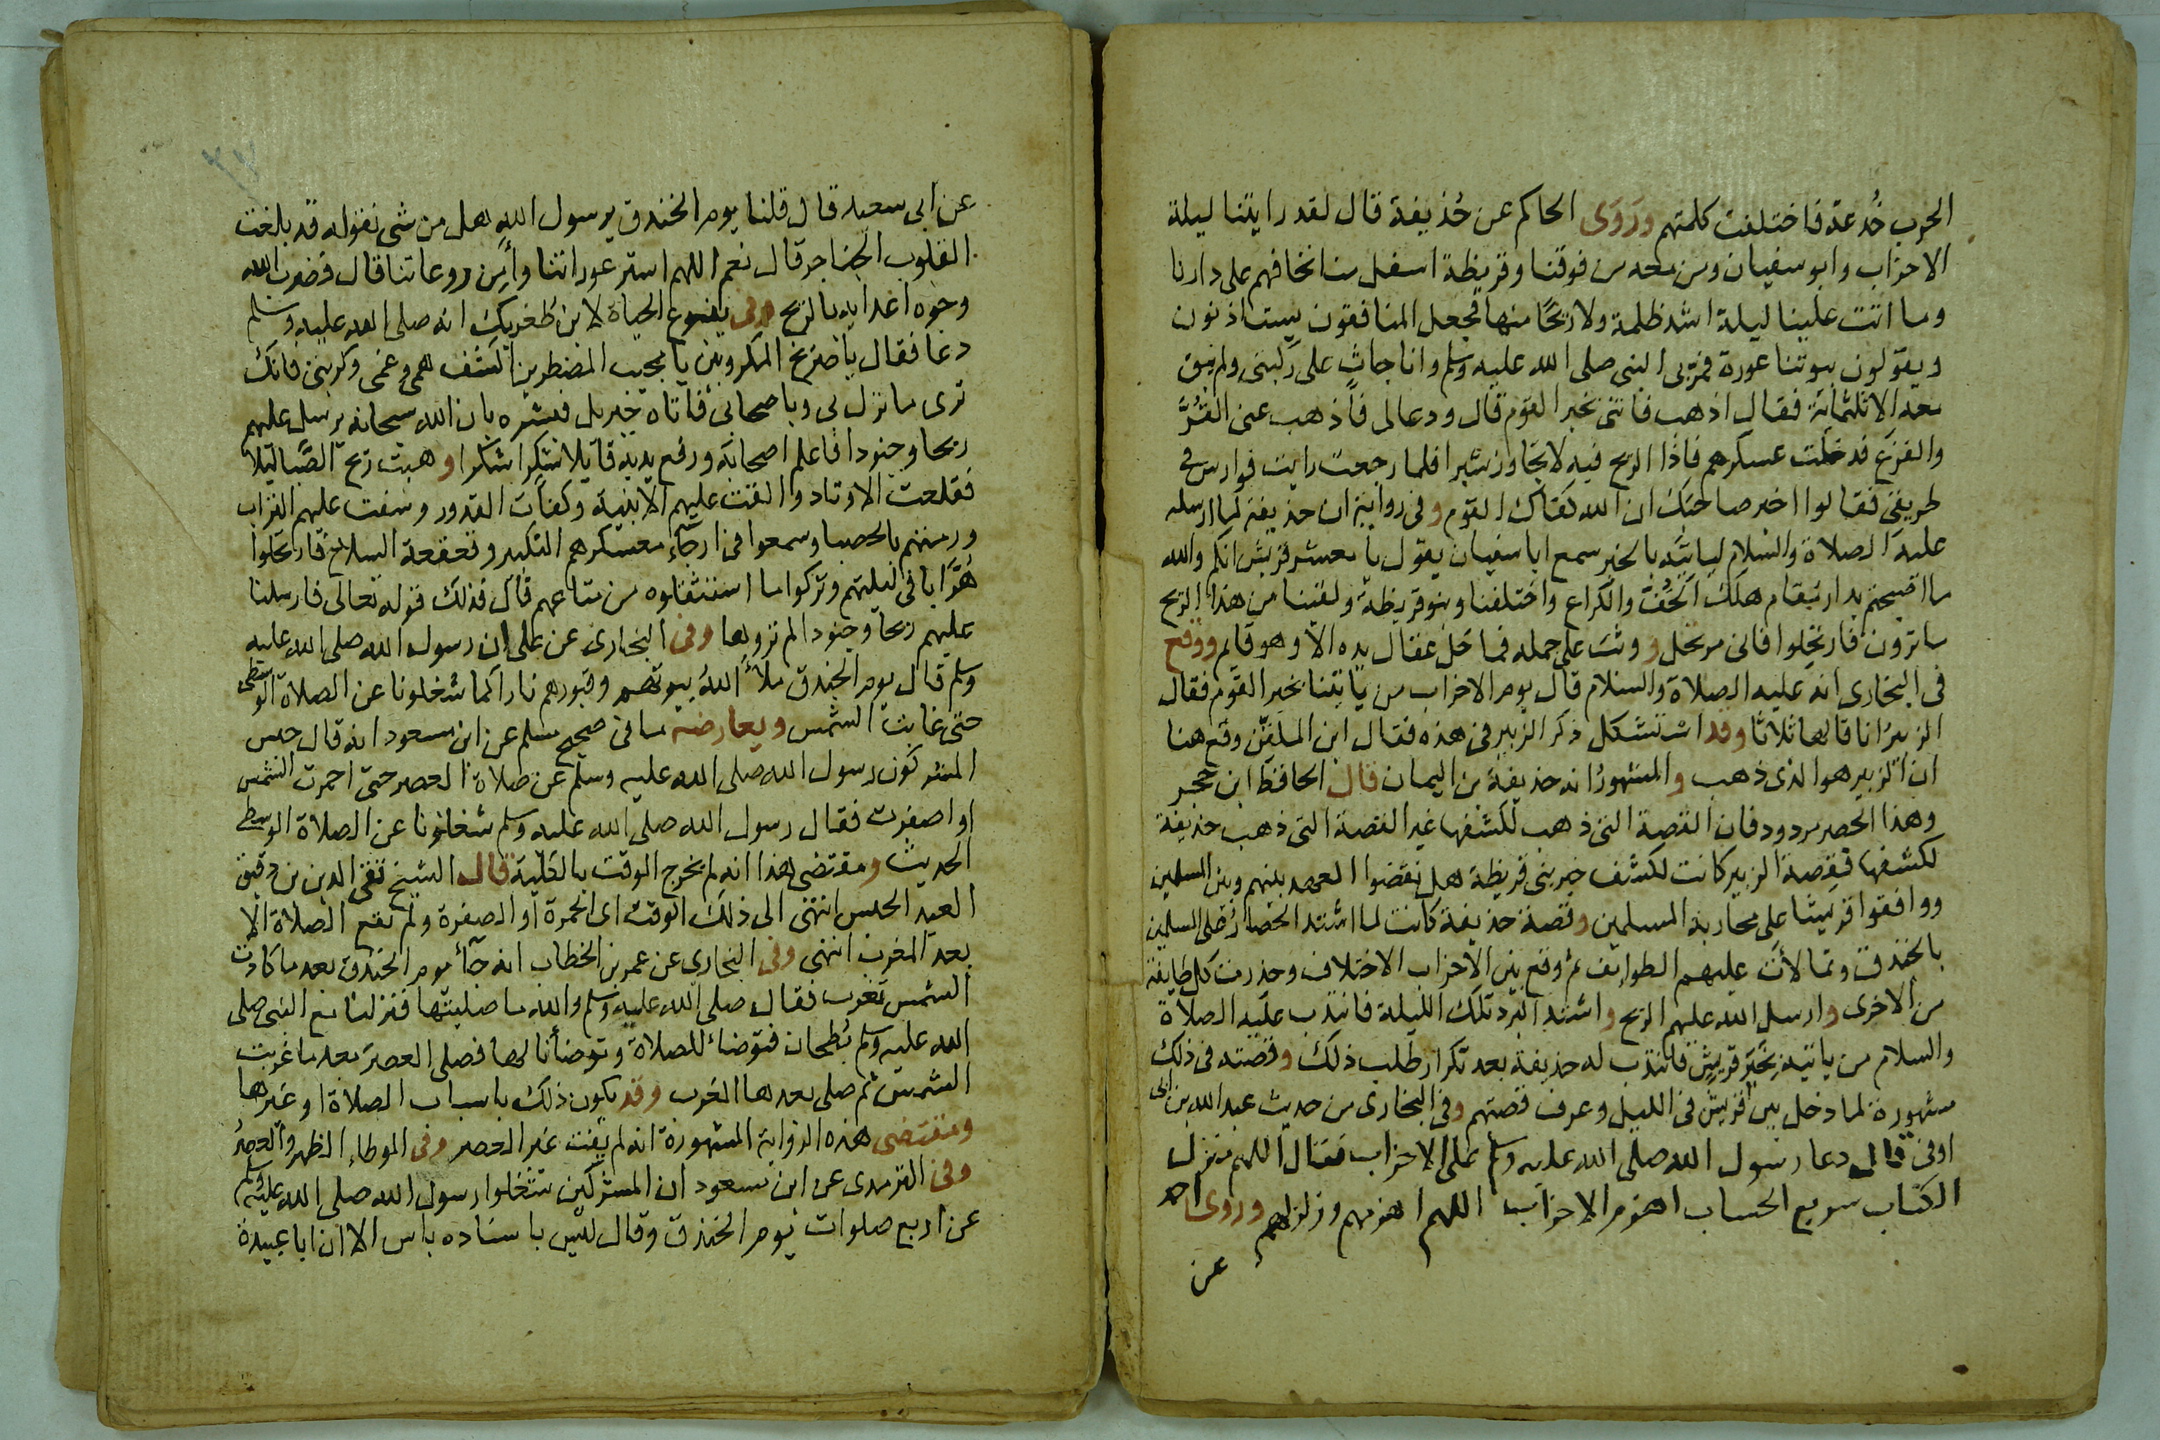 الحرب خُدعة فاختلفت كلمتهم وروى الحاكم عن حُذيفة قال لقد رايتنا ليلة
الاحزاب وابو سفيان ومن معه من فوقنا وقريظة اسفل منا نخافهم على دارنا
وما اتت علينا ليلة اشد ظلمة ولا ريحًا منها فجعل المنافقون يستاذنون
ويقولون بيوتنا عورة فمر بى النبى صلى الله عليه وسلم وانا جاثٍ على ركبتى ولم يبق
معه الا ثلثمائة فقال اذهب فاتنى بخبر القوم قال ودعا لى فأذهب عنى القُرَّ
والفزع قد خلت عسكرهم فاذا الريح فيه لا تجاوز شبرا فلما رجعت رايت فوارس فى
طريقى فقالوا اخبر صاحبك ان الله كفاك القوم وفى رواية ان حذيفة لما ارسله
عليه الصلاة والسلام لياتيه بالخبر سمع ابا سفيان يقول يا معشر قريش انكم والله
ما اصبحتم بدار مقام هلك الخُفّ والكراع واختلفنا وبنو قريظة ولقينا من هذا الريح
ما ترون فارتحلوا فانى مرتحل ووثب على جمله فما حَلَّ عقال يده الا وهو قايم ووقع
فى البخارى انه عليه الصلاة والسلام قال يوم الاحزاب من ياتينا بخبر القوم فقال
الزبير انا قالها ثلاثا وقد استشكل ذكر الزبير فى هذه فقال ابن الملقن وقع هنا
ان الزبير هو الذى ذهب والمشهور انه حذيفة بن اليمان قال الحافظ ابن حجر
وهذا الحصر مردود فان القصة التى ذهب لكشفها غير القصة التى ذهب حذيفة
لكشفها فقصة الزبير كانت لكشف خبر بنى قريظة هل نقضوا العهد بينهم وبين المسلمين
ووافقوا قريشا على محاربة المسلمين وقصة حذيفة كانت لما اشتد الحصار على المسلمين
بالخندق وتمالأت عليهم الطوايف ثم وقع بين الاحزاب الاختلاف وحذرت كل طايفة
من الاخرى وارسل الله عليهم الريح واشتد البرد تلك الليلة فانتدب عليه الصلاة
والسلام من ياتيه بخبر قريش فانتدب له حذيفة بعد تكرار طلب ذلك وقصته فى ذلك
مشهورة لما دخل بين قريش فى الليل وعرف قصتهم وفى البخارى من حديث عبد الله بن ابى
اوفى قال دعا رسول الله صلى الله عليه وسلم على الاحزاب فقال اللهم منزل
الكتاب سريع الحساب اهزم الاحزاب اللهم اهزمهم وزلزلهم وروى احمد
عن
عن ابى سعيد قال قلنا يوم الخندق يرسول الله هل من شى نقوله قد بلغت
القلوب الحناجر قال نعم اللهم استر عوراتنا وأمن روعاتنا قال فضرب الله
وجوه اعدايه بالريح وفى ينبوع الحياة لابن ظفر انه صلى الله عليه وسلم
دعا فقال يا صريخ المكروبين يا مجيب المضطرين اكشف همى وغمى وكربتى فانك
ترى ما نزل بى وباصحابى فأتاه جبريل فبشره بان الله سبحانه يرسل عليهم
ريحا وجنودا فاعلم اصحابه ورفع يديه قايلا شكرا شكرا وهبت ريح الصَّبا ليلا
فقلعت الاوتاد والقت عليهم الابنية وكفأت القدور وسفت عليهم التراب
ورمتهم بالحصبا وسمعوا فى ارجاء معسكرهم التكبير وقعقعة السلاح فارتحلوا
هُرَّابا فى ليلتهم وتركوا ما استثقلوه من متاعهم قال فذلك قوله تعالى فارسلنا
عليهم ريحا وجنودا لم تروها وفى البخارى عن على ان رسول الله صلى الله عليه
وسلم قال يوم الخندق ملأ اللهُ بيوتهم وقبورهم نارا كما شغلونا عن الصلاة الوسطى
حتى غابت الشمس ويعارضه ما فى صحيح مسلم عن ابن مسعود انه قال حبس
المشركون رسول الله صلى الله عليه وسلم عن صلاة العصر حتى احمرت الشمس
او اصفرت فقال رسول الله صلى الله عليه وسلم شغلونا عن الصلاة الوسطى
الحديث ومقتضى هذا انه لم يخرج الوقت بالكلية قال الشيخ تقى الدين بن دقيق
العيد الحبس انتهى الى ذلك الوقت اى الحمرة أو الصفرة ولم تقع الصلاة الا
بعد المغرب انتهى وفى البخارى عن عمر بن الخطاب انه جآء يوم الخندق بعد ما كادت
الشمس تغرب فقال صلى الله عليه وسلم والله ما صليتها فنزلنا مع النبى صلى
الله عليه وسلم بُطحان فتوضا للصلاة وتوضأنا لها فصلى العصر بعد ما غربت
الشمس ثم صلى بعدها المغرب وقد يكون ذلك باسباب الصلاة او غيرها
ومقتضى هذه الرواية المشهورة انه لم يفت غير العصر وفى الموطاء الظهر والعصر
وفى الترمذى عن ابن مسعود ان المشركين شغلوا رسول الله صلى الله عليه وسلم
عن اربع صلوات يوم الخندق وقال ليس باسناده باس الا ان ابا عبيدة